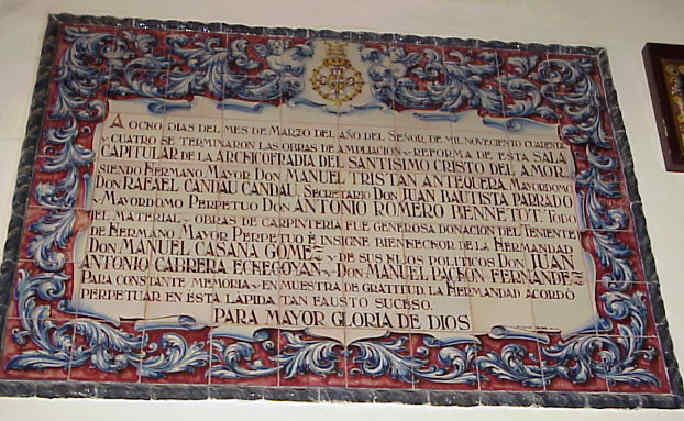 A OCHO DIAS DEL MES DE MARZO DEL AÑO DEL SEÑOR, DE MIL NOVECIENTO CUARENTA
Y CUATRO SE TERMINARON LAS OBRAS DE AMPLIACION Y REFORMA DE ESTA SALA
CAPITULAR DE LA ARCHICOFRADIA DEL SANTISIMO CRISTO DEL AMOR
SIENDO HERMANO MAYOR DON MANUEL TRISTAN ANTEQUERA MAYORDOMO
DON RAFAEL CANDAU CANDAU, SECRETARIO DON JUAN BAUTISTA PARRADO
Y MAYORDOMO PERPETUO DON ANTONIO ROMERO BENNETOT. TODO
EL MATERIAL Y OBRAS DE CARPINTERIA FUE GENEROSA DONACION DEL TENIENTE
DE HERMANO MAYOR PERPETUO E INSIGNE BIENHECHOR DE LA HERMANDAD
DON MANUEL CASANA GOMEZ Y DE SUS HIJOS POLITICOS DON JUAN
ANTONIO CABRERA ECHEGOYAN Y DON MANUEL PACHON FERNANDEZ
PARA CONSTANTE MEMORIA Y EN MUESTRA DE GRATITUD, LA HERMANDAD ACORDÓ
PERPETUAR EN ESTA LAPIDA TAN FAUSTO SUCESO.
PARA MAYOR GLORIA DE DIOS